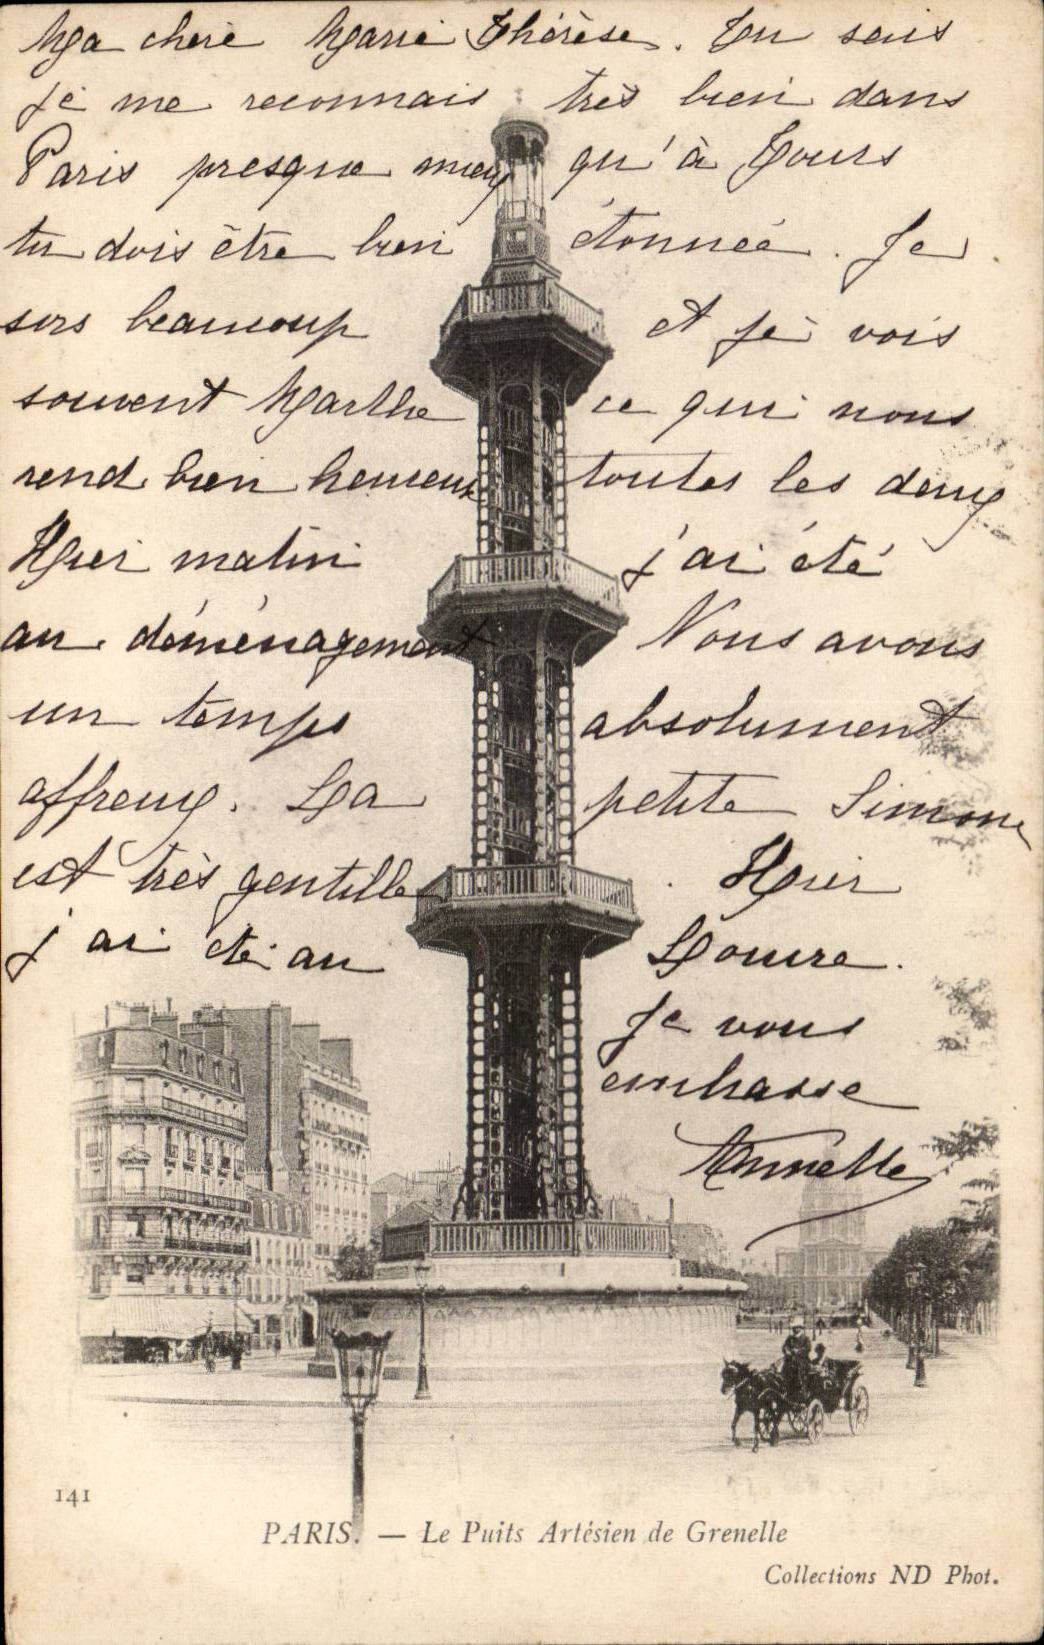 Ma chère Marie Thérèse. Tu sais
je me reconnais très bien dans
Paris presque mieux qu'à Tours
tu dois être bien étonnée. Je
sors beaucoup et je vois
souvent Marthe ce qui nous
rend bien heureux toutes les deux
Hier matin j'ai été
au déménagement Nous avons
un temps absolument
affreux. La petite Simone
est très gentille. Hier
j'ai été au Louvre.
Je vous
embrasse
Annette
141
PARIS. — Le Puits Artésien de Grenelle
Collections ND Phot.